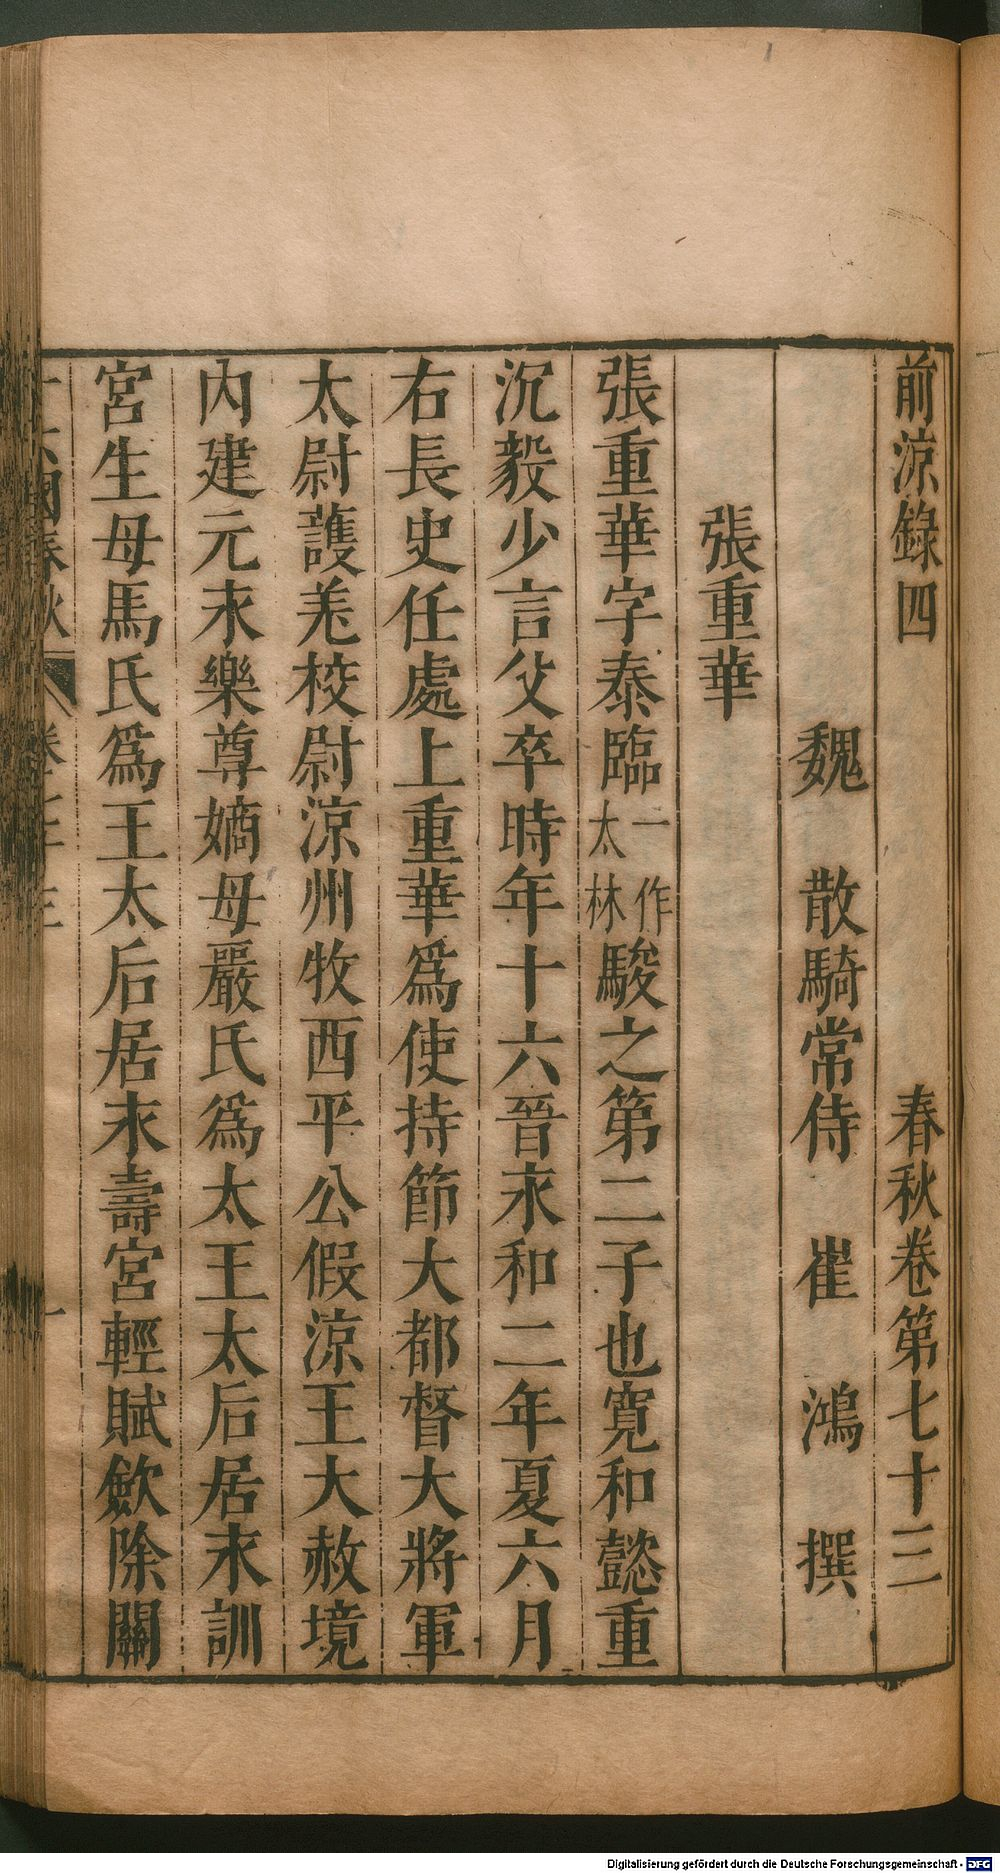 前涼錄四　春秋卷第七十三
魏　散騎常侍　崔　鴻　撰
張重華
張重華字泰臨一作太林駿之第二子也寬和懿重
沉毅少言父卒時年十六晉永和二年夏六月
右長史任處上重華爲使持節大都督大將軍
太尉護羌校尉涼州牧西平公假涼王大赦境
內建元永樂尊嫡母嚴氏爲太王太后居永訓
宮生母馬氏爲王太后居永壽宮輕賦歛除關
十六國春秋　卷七十三　一
Digitalisierung gefördert durch die Deutsche Forschungsgemeinschaft - DFG